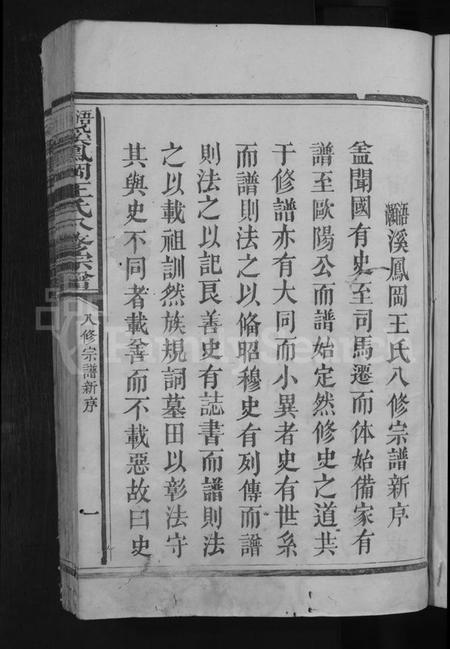 浯溪鳳岡王氏八修宗譜新序
盖聞國有史至司馬遷而体始備家有
譜至歐陽公而譜始定然修史之道共
于修譜亦有大同而小異者史有世系
而譜則法之以俻昭穆史有列傳而譜
則法之以記良善史有誌書而譜則法
之以載祖訓然族規詞墓田以彰法守
其與史不同者載善而不載惡故曰史
浯溪鳳岡王氏八修宗譜
八修宗譜新序
一
FamilySearch